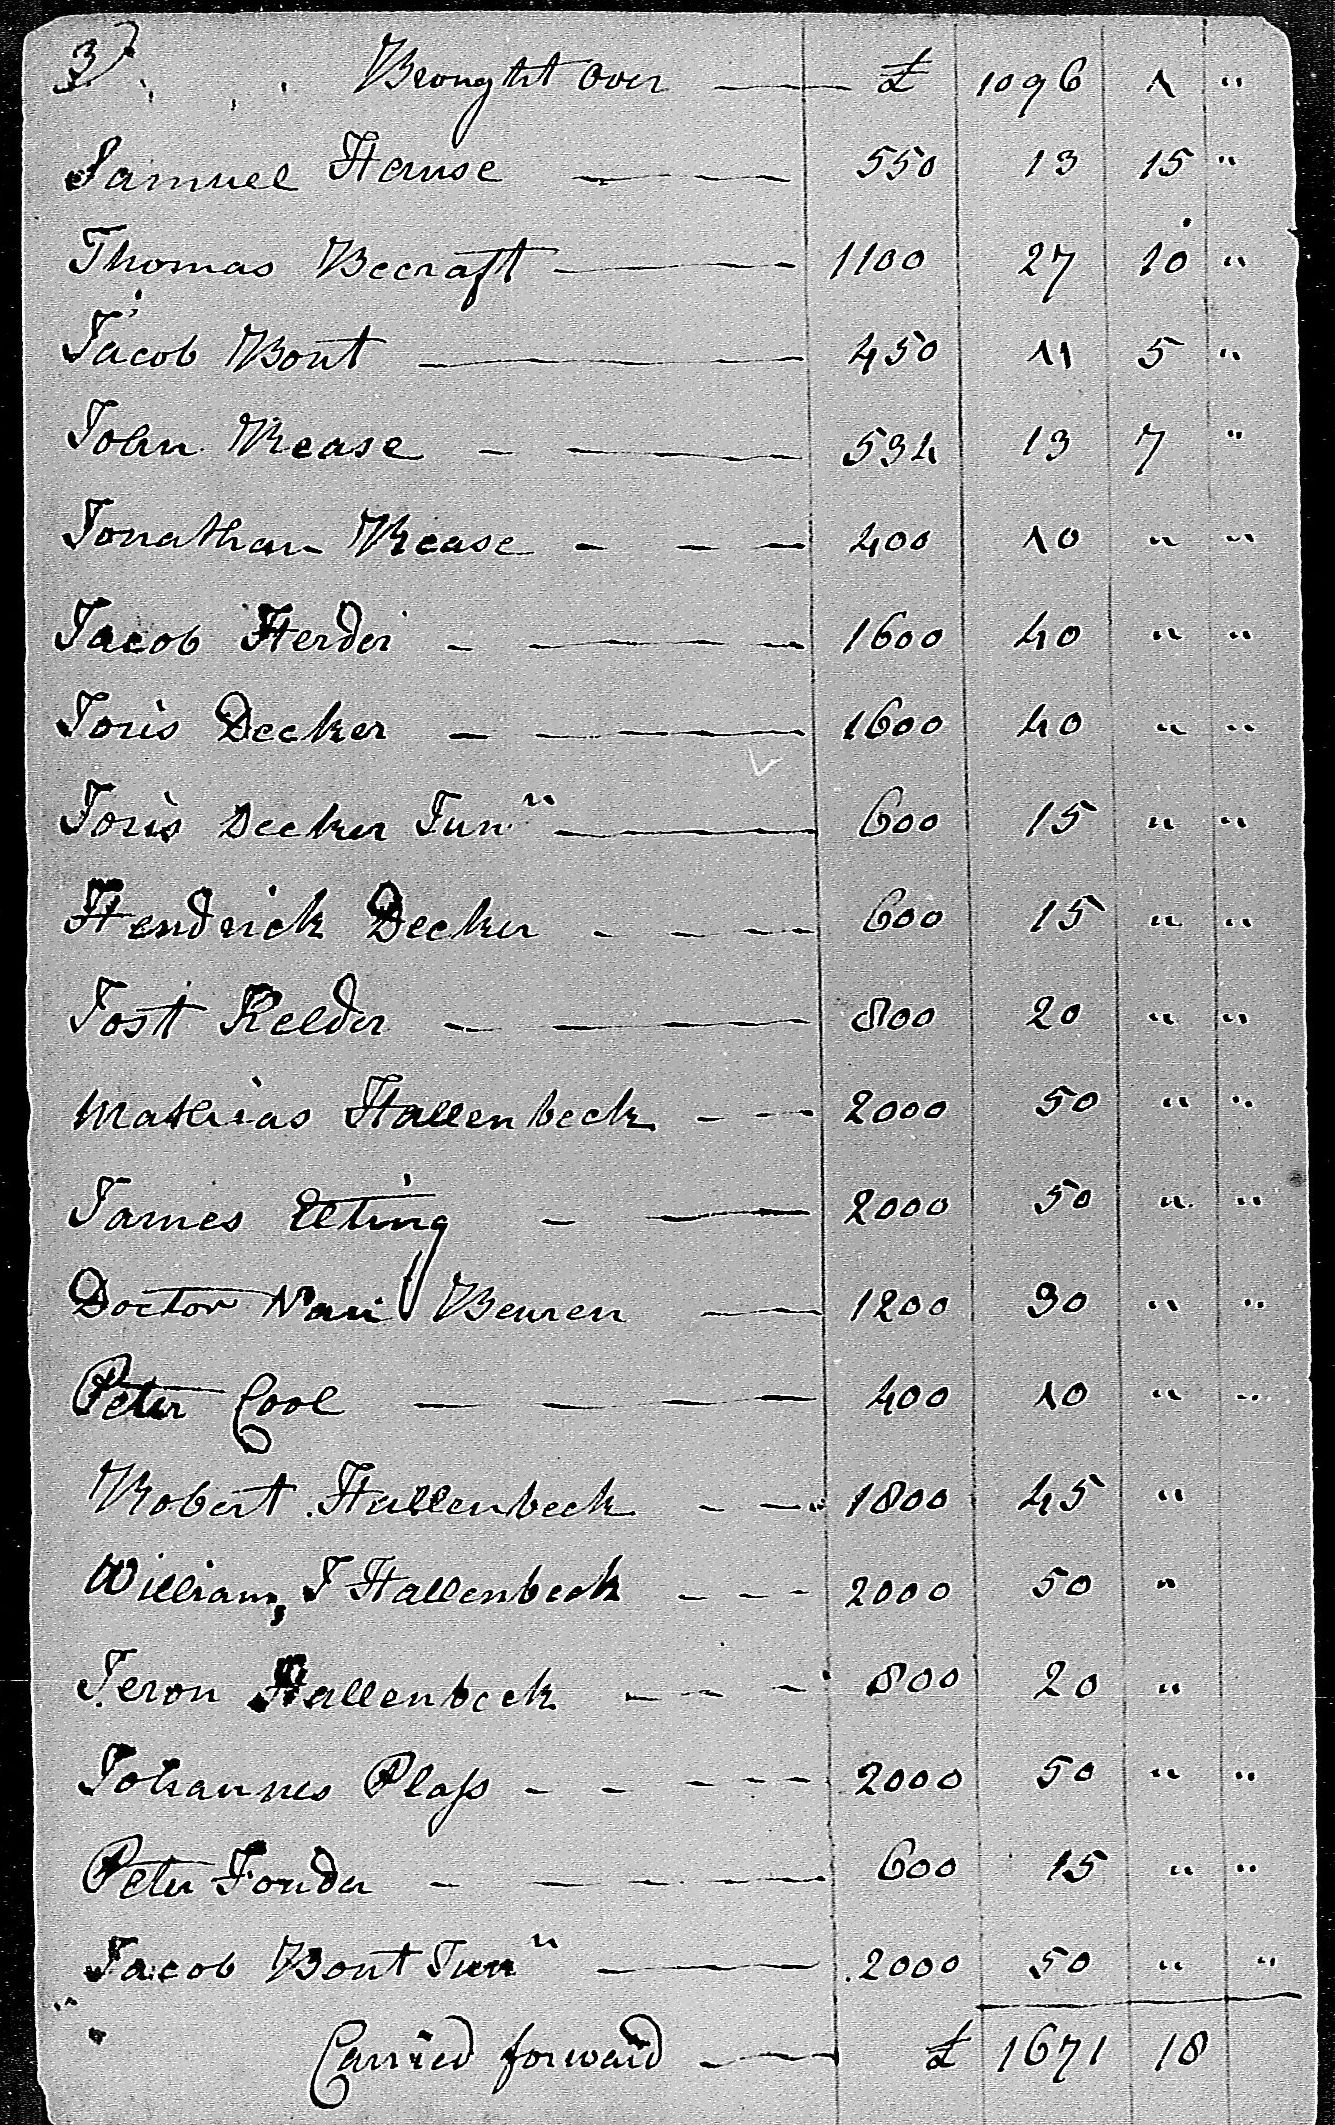 3 Brought over £ 1096 1 "
Samuel Hause 550 13 15 "
Thomas Becraft 1100 27 10 "
Jacob Bont 450 11 5 "
John Rease 534 13 7 "
Jonathan Rease 400 10 " "
Jacob Herder 1600 40 " "
Joris Decker 1600 40 " "
Joris Decker Junr 600 15 " "
Hendrick Decker 600 15 " "
Jost Kelder 800 20 " "
Mathias Hallenbeck 2000 50 " "
James Elting 2000 50 " "
Doctor Van Beuren 1200 30 " "
Peter Cool 400 10 " "
Robert Hallenbeck 1800 45 "
William J Hallenbeck 2000 50 "
Jeron Hallenbeck 800 20 "
Johannes Plass 2000 50 " "
Peter Fonda 600 15 " "
Jacob Bont Junr 2000 50 " "
Carried forward £ 1671 18